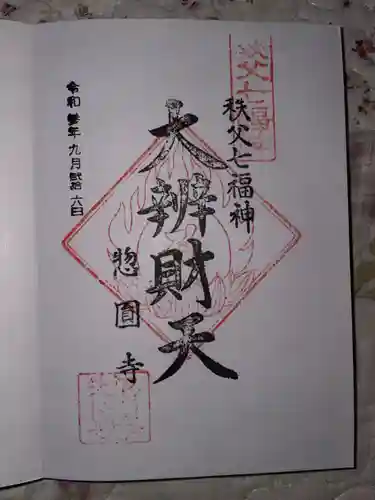 秩父七福神
秩父七福神
大辨財天
惣圓寺
令和弐年九月弐拾六日